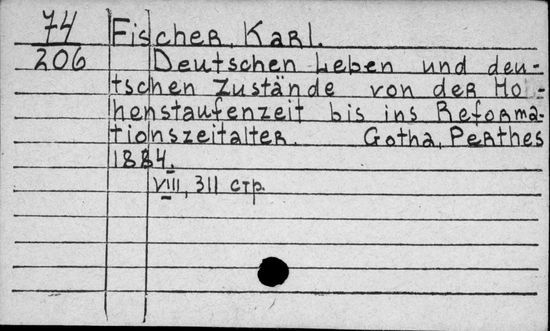 74
206
Fischer, Karl.
Deutschen Leben und deu-
tschen Zustände von der Ho-
henstaufenzeit bis ins Reforma-
tionszeitalter. Gotha, Perthes
1884.
VIII, 311 стр.